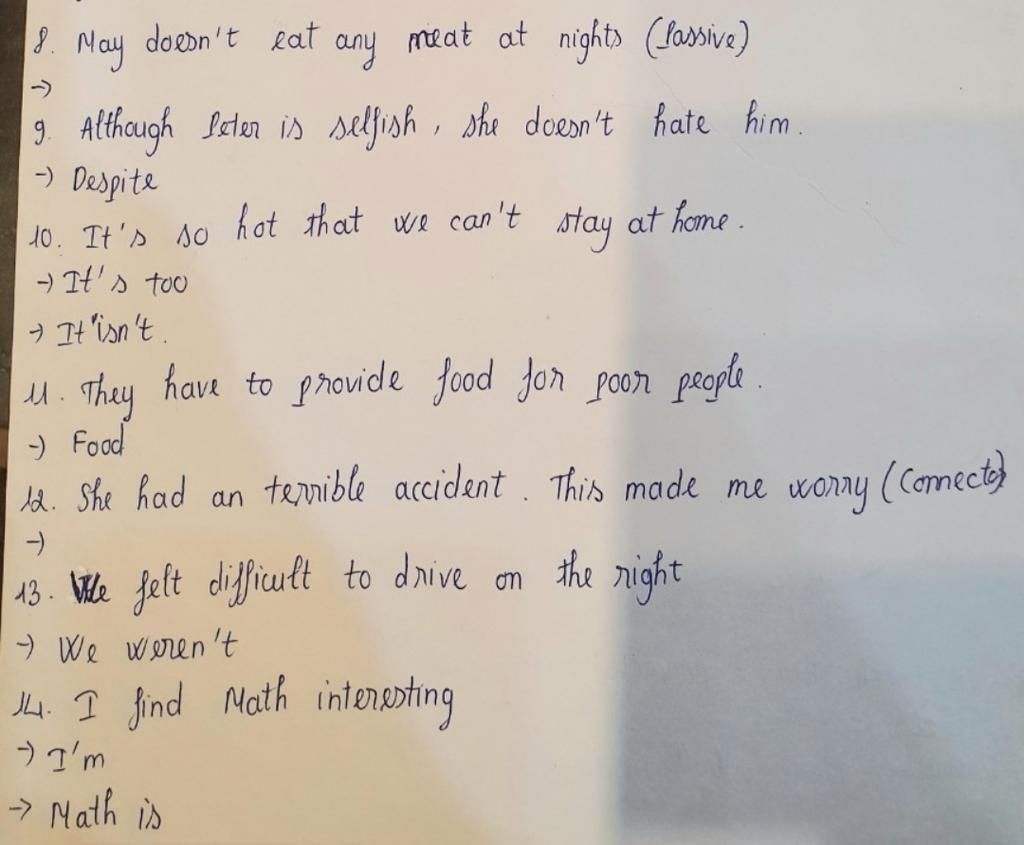 8. May doesn't eat any meat at nights (Passive)
→
9. Although Peter is selfish, she doesn't hate him.
→ Despite
10. It's so hot that we can't stay at home.
→ It's too
→ It isn't.
11. They have to provide food for poor people.
→ Food
12. She had an terrible accident. This made me worry (Connect)
→
13. We felt difficult to drive on the right
→ We weren't
14. I find Math interesting
→ I'm
→ Math is